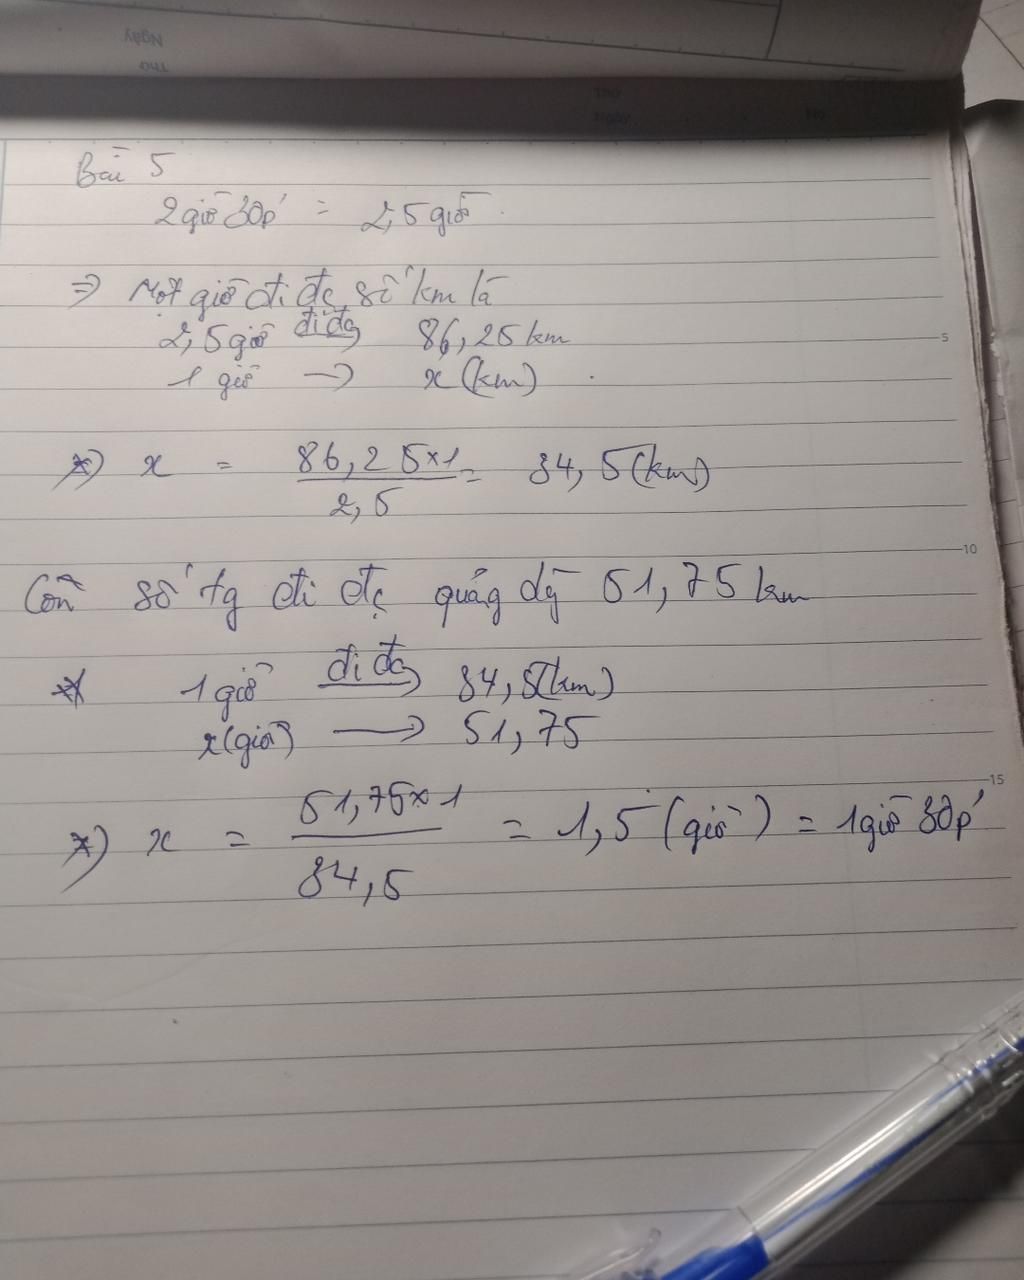 Ngày
Thứ
Thứ
Ngày
No
Bài 5
2 giờ 30p' = 2,5 giờ
=> Một giờ đi đc số km là
2,5 giờ đi đc → 86,25 km
5
1 giờ → x (km)
*) x = 86,25 × 1 / 2,5 = 34,5 (km)
10
Còn số tg đi đc quãng đg 51,75 km
* 1 giờ đi đc → 34,5 (km)
x (giờ) → 51,75
15
*) x = 51,75 × 1 / 34,5 = 1,5 (giờ) = 1 giờ 30p'